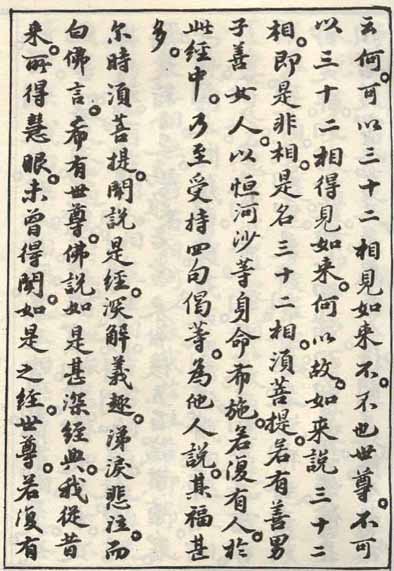 云何。可以三十二相見如来不。不也世尊。不可
以三十二相得見如来。何以故。如来說三十二
相。即是非相。是名三十二相。須菩提。若有善男
子善女人。以恒河沙等身命布施。若復有人。於
此經中。乃至受持四句偈等。為他人說。其福甚
多。
尔時須菩提。聞說是經。深解義趣。涕淚悲泣。而
白佛言。希有世尊。佛說如是甚深經典。我從昔
来所得慧眼。未曾得聞。如是之經。世尊。若復有